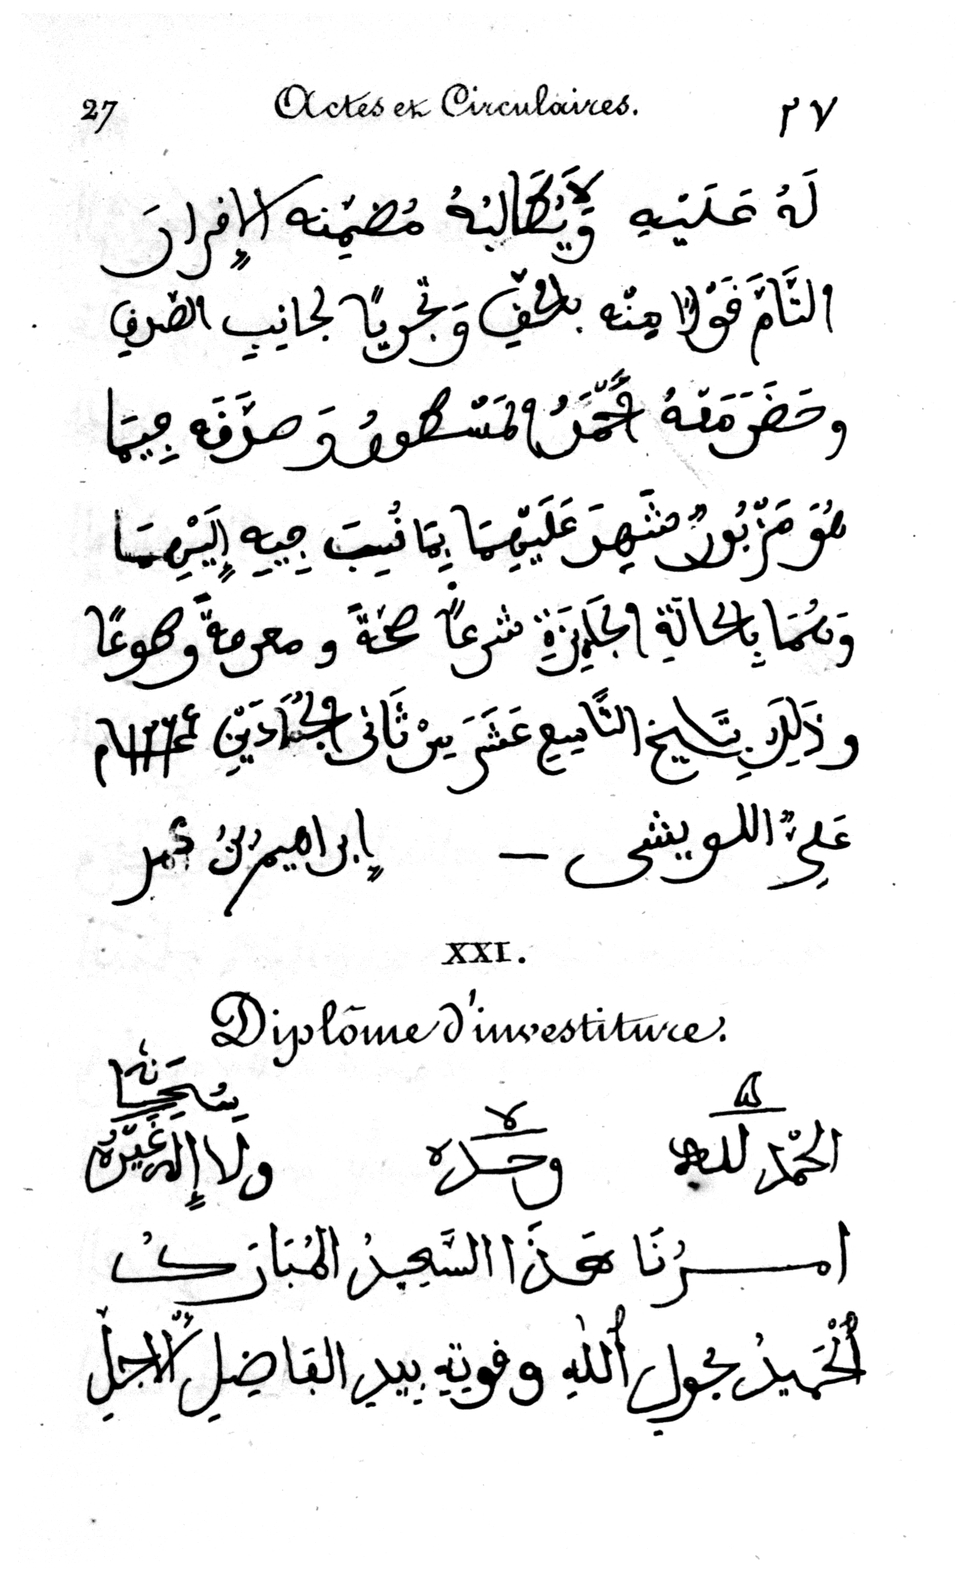 27 Actes et Circulaires. ٢٧
لَهُ عَلَيْهِ وَلَا يُطَالِبُهُ مُضَمِّنه الإِقرارَ
التَّامَّ قَوْلًا مِنْه بالحَقِّ وَتَحَرِّيًا لجانِبِ الصِّدْقِ
وحَضَرَ مَعَهُ مُحَمَّدُ المَسْطُورُ وَصَدَّقَه فِيمَا
هُوَ مَزْبُورٌ شَهِدَ عَلَيْهِمَا بِمَا نُسِبَ فِيهِ إِلَيْهِمَا
وَهُمَا بِالحَالَةِ الجَائِزَةِ شرعاً صحّةً ومعرفةً وطوعًا
وذَلِكَ بِتَارِيخِ التَّاسِعِ عَشَرَ مِنْ ثَانِى الجُمَادَيَيْنِ عام
عَلِيٌّ اللويشى — إبراهيمُ بْنُ عُمر
XXI.
Diplôme d'investiture.
الحَمْدُ لله وحده ولا إِلَه غَيْرُهُ
امـرُنَا هَـذَا السَّعِيدُ المُبَارَكُ
الْحَمِيدُ بحول اللهِ وقوتِهِ بِيدِ الفَاضِلِ الأَجلِّ